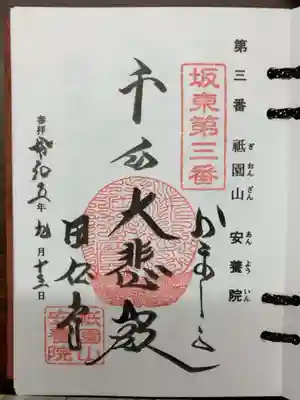 第三番 祇園山 安養院
ぎおんざん あんよういん
坂東第三番
かまくら
千手大悲殿
田代寺
祇園山
安養院
参拝 年 月十三日